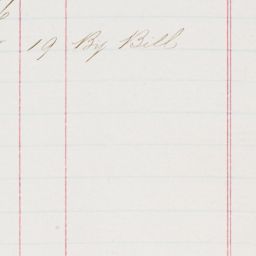 19 By Bill